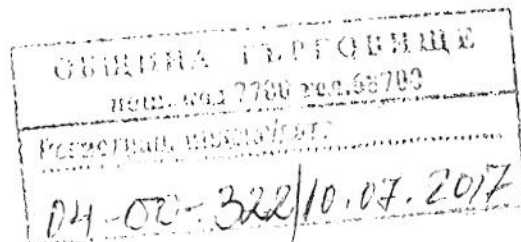 ОБЩИНА ТЪРГОВИЩЕ
пощ. код 7700 тел. 68700
Регистрац. индекс/дата
04-00-322/10.07.2017